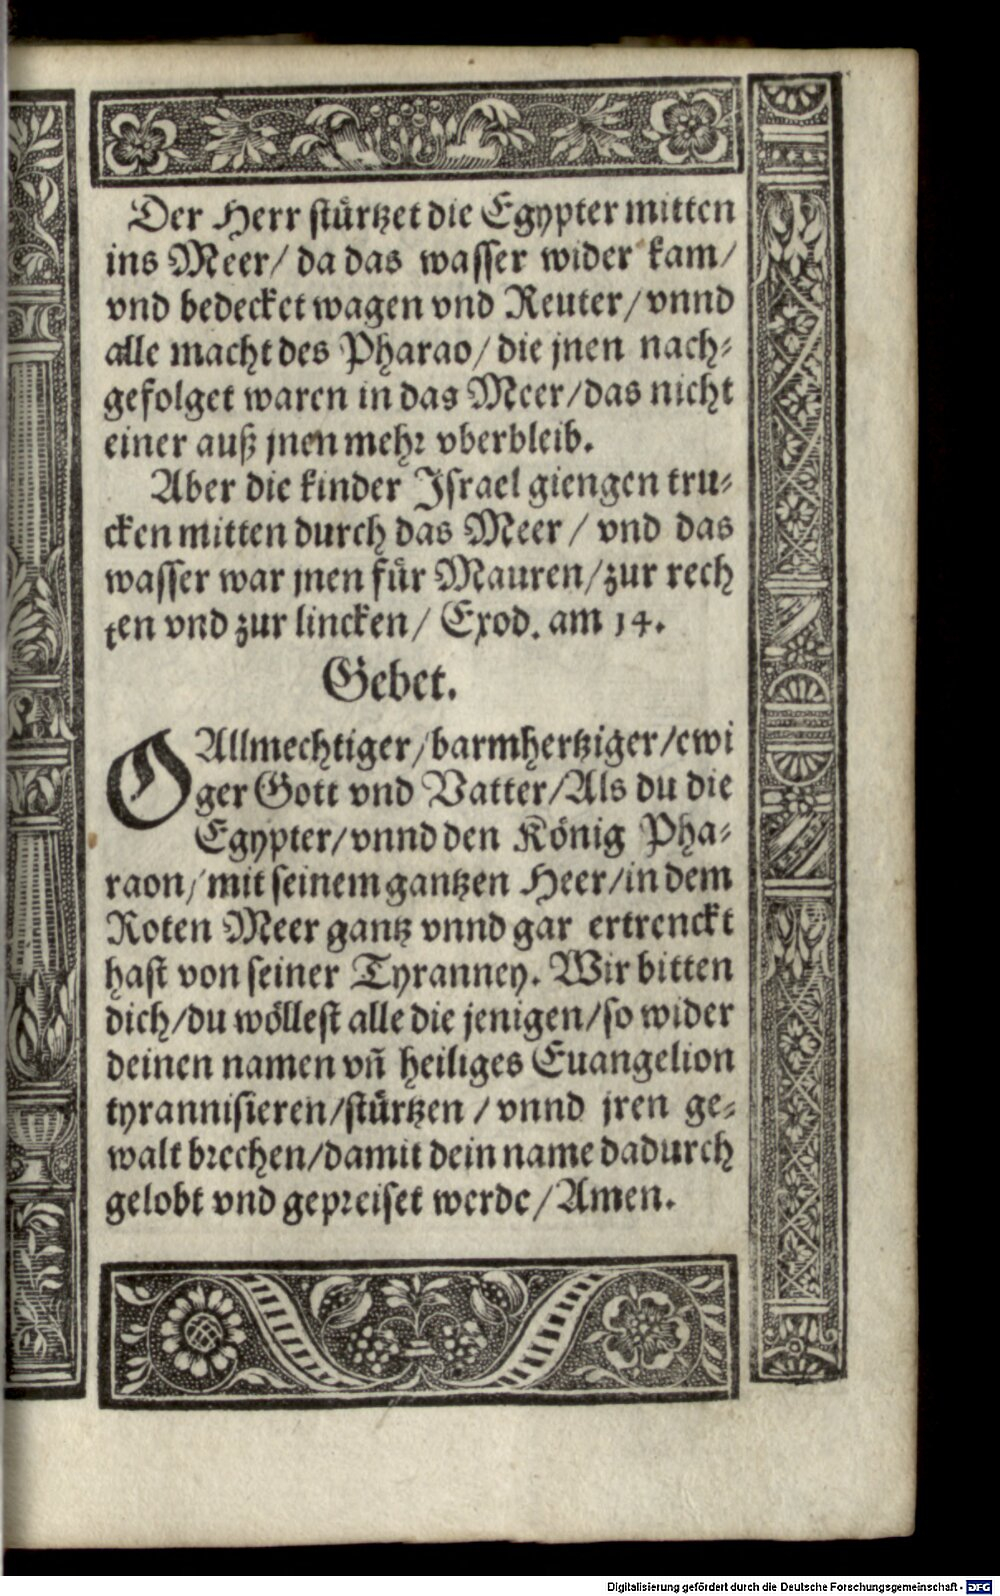 Der Herr stürtzet die Egypter mitten
ins Meer/ da das wasser wider kam/
vnd bedecket wagen vnd Reuter/ vnnd
alle macht des Pharao/ die jnen nach-
gefolget waren in das Meer/das nicht
einer auß jnen mehr vberbleib.
Aber die kinder Israel giengen tru-
cken mitten durch das Meer / vnd das
wasser war jnen für Mauren/zur rech
ten vnd zur lincken/ Exod. am 14.
Gebet.
O Allmechtiger/barmhertziger/ewi
ger Gott vnd Vatter/Als du die
Egypter/vnnd den König Pha-
raon/mit seinem gantzen Heer/in dem
Roten Meer gantz vnnd gar ertrenckt
hast von seiner Tyranney. Wir bitten
dich/du wöllest alle die jenigen/so wider
deinen namen vñ heiliges Euangelion
tyrannisieren/stürtzen / vnnd jren ge-
walt brechen/damit dein name dadurch
gelobt vnd gepreiset werde/Amen.
Digitalisierung gefördert durch die Deutsche Forschungsgemeinschaft - DFG